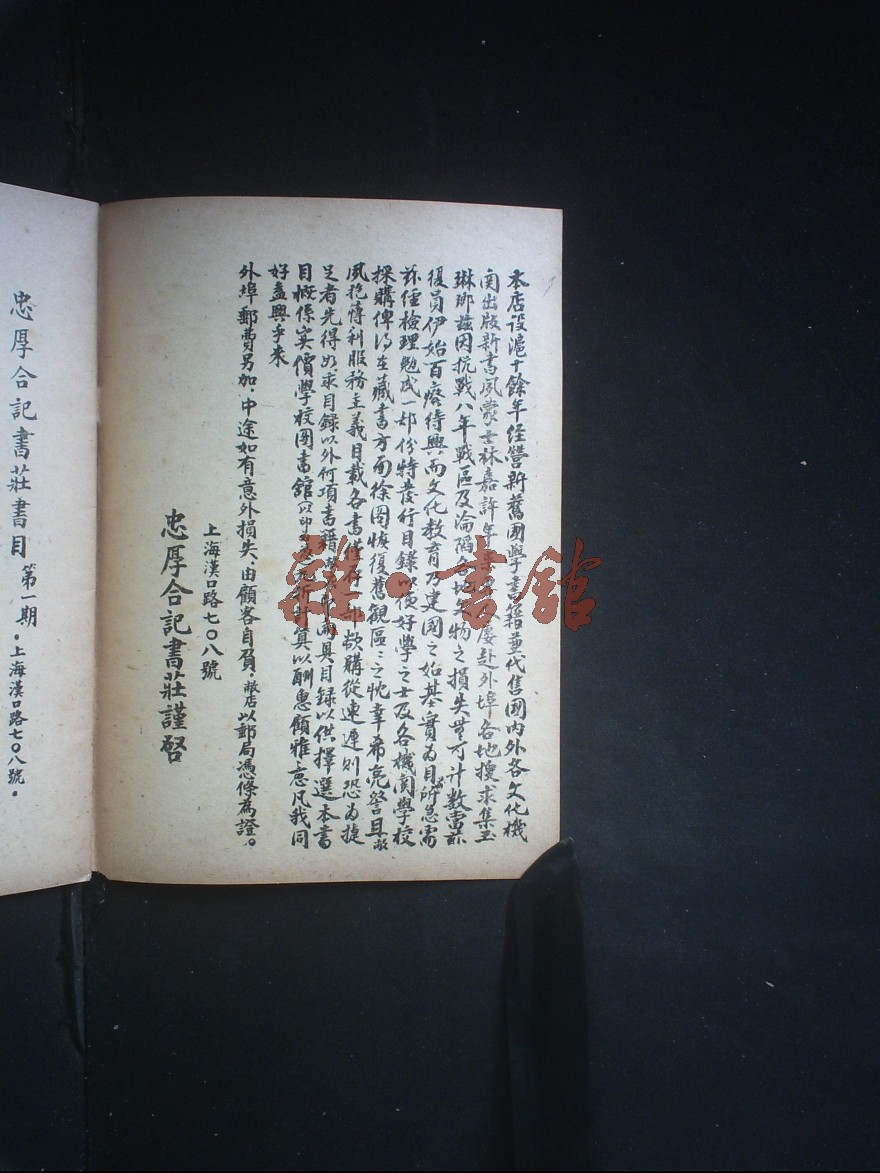 本店设滬十餘年經營新舊國學書籍兼代售國內外各文化機
関出版新書夙蒙士林嘉許年來屢赴外埠各地搜求集玉
琳瑯兹因抗戰八年戰區及淪陷各地文物之損失無可計數當茲
復員伊始百癈待興而文化教育乃建國之始基實為目所急需
茲經檢理勉成一部份特發行目錄以便好學之士及各機関學校
採購俾得在藏書方面徐圖恢復舊觀區〻之忱幸希亮詧且敝
夙抱薄利服務主義目載各書僅存一部欲購從速遲則恐為捷
足者先得如求目録以外何項書籍另具目録以供擇選本書
目概係实價學校図書館以印折計算以酬惠顧雅意凡我同
好盍興乎來
外埠郵費另加．中途如有意外損失．由顧客自負．敝店以郵局憑條為證。
上海漢口路七〇八號
忠厚合記書莊謹啓
忠厚合記書莊書目 第一期．上海漢口路七〇八號．
雜·書館